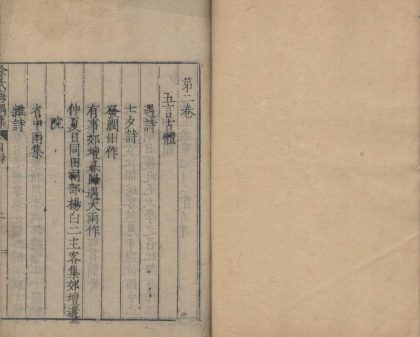 第二卷
五言古體
遇詩
七夕詩
發潤州作
有事郊壇恭遇大雨作
仲夏旦同田祠部楊白二主客集郊壇
院
省中雨集
雜詩